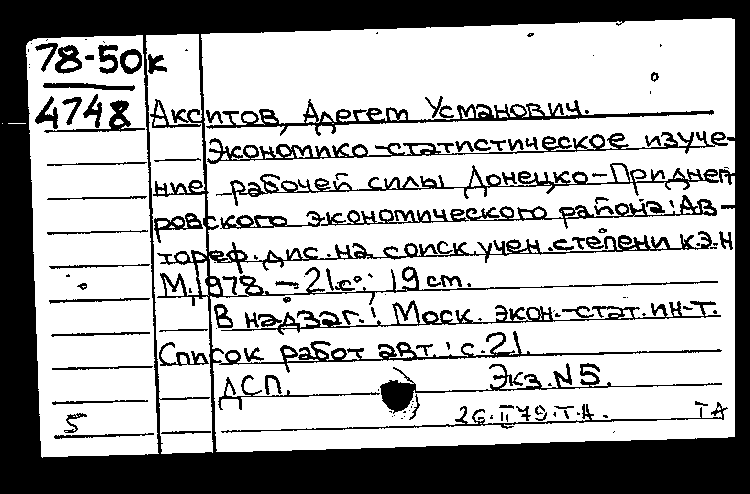 78-50к
4748 Акситов, Адегет Усманович.
Экономико-статистическое изуче-
ние рабочей силы Донецко-Приднеп-
ровского экономического района: Ав-
тореф. дис. на соиск. учен. степени к.э.н
М., 1978. - 21с.; 19 cm.
В надзаг.: Моск. экон.-стат. ин-т.
Список работ авт.: с. 21.
ДСП. Экз. N5.
5 26.II 79. Т.А. ТА